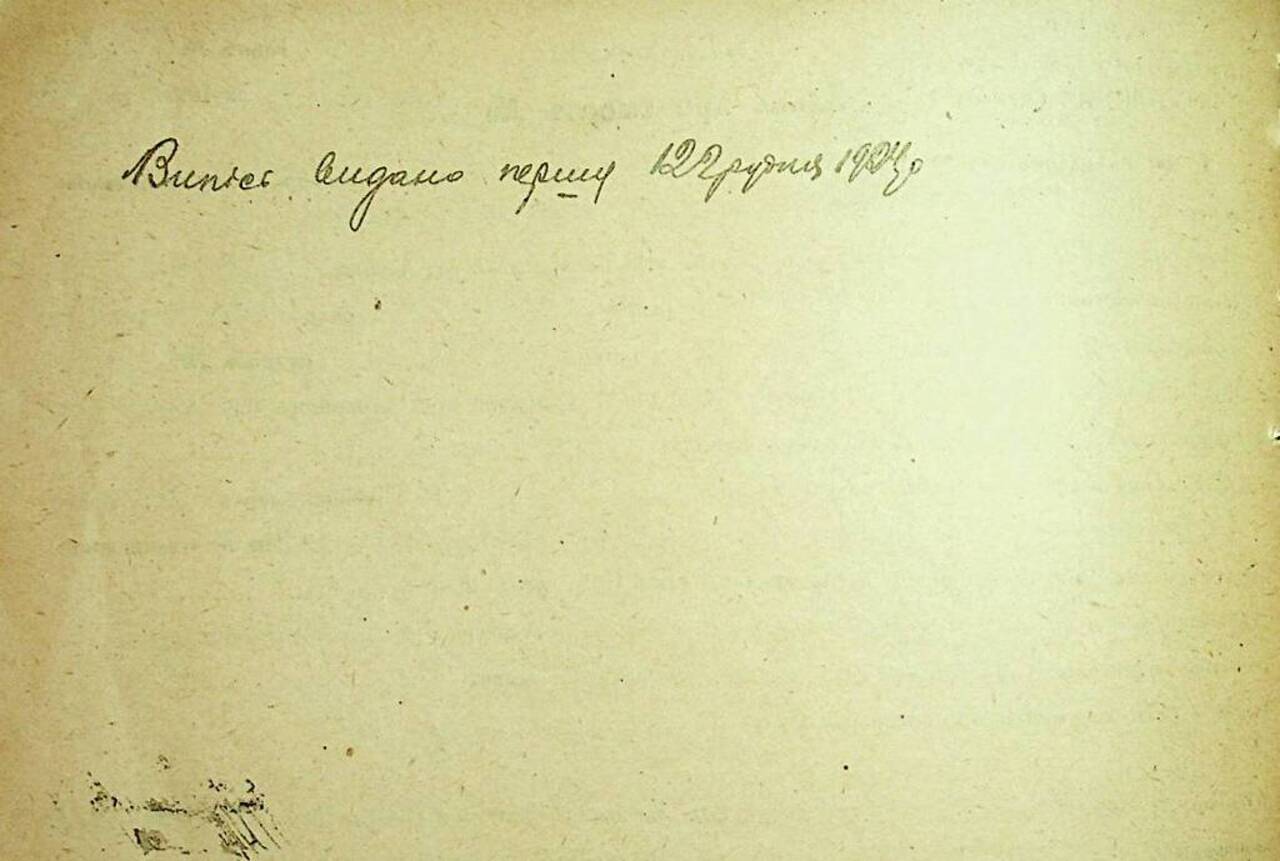 Випіс видано першу 12 грудня 1924 р